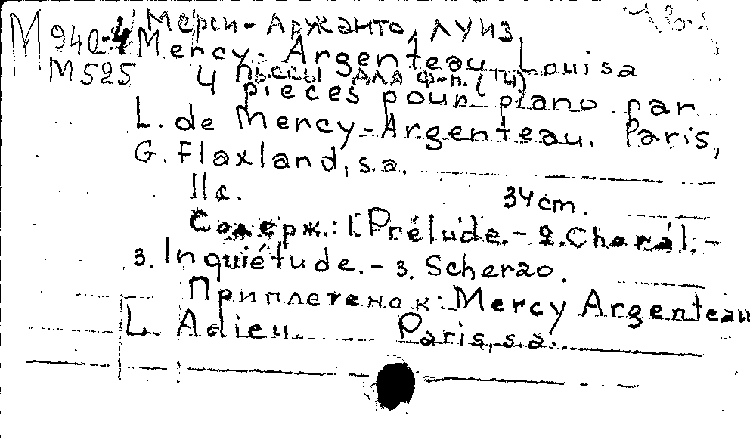 М 940-4 Мерси-Аржанто, Луиз
М525 Mercy-Argenteau, Louisa
4 пьесы для ф-п. (
4 pièces pour piano par
L. de Mercy-Argenteau. Paris,
G. Flaxland, s.a.
11c. 34cm.
Содерж.: 1. Prélude.- 2. Chorál.-
3. Inquiétude.- 3. Scherzo.
Приплетено к: Mercy Argenteau
L. Adieu. Paris, s.a.